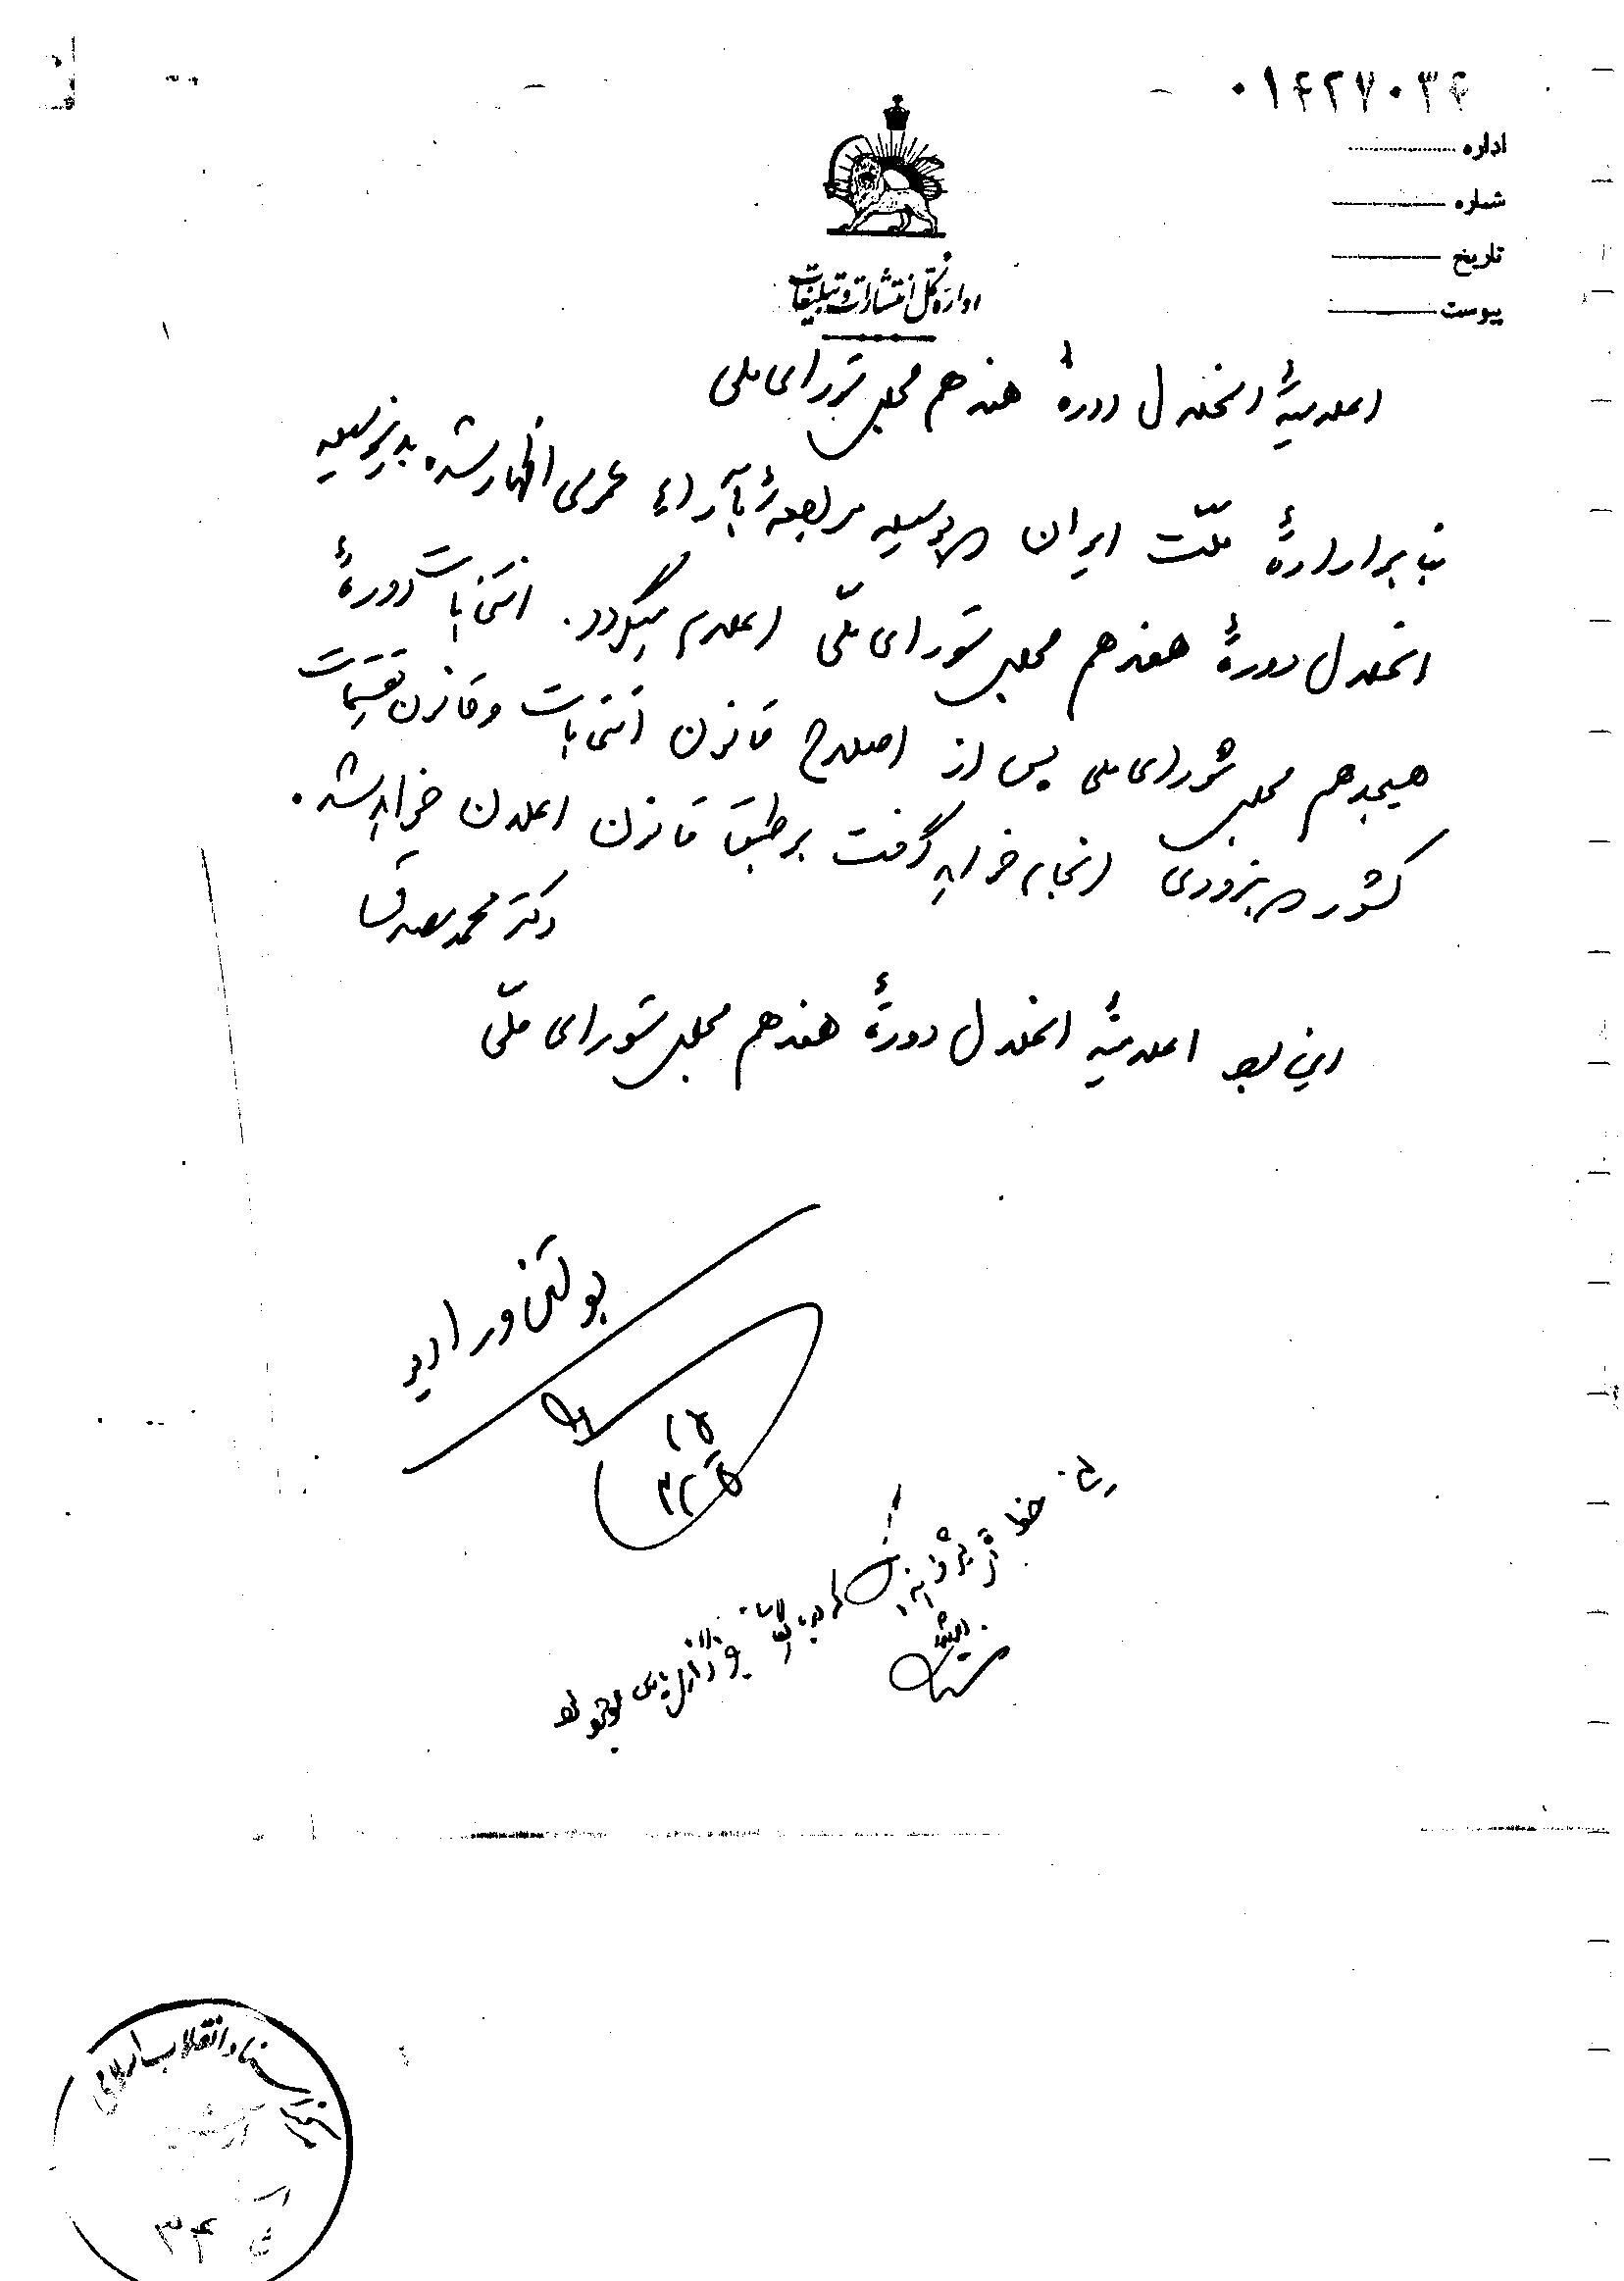 ۰۱۴۲۷۰۳۴
اداره
شماره
تاریخ
پیوست
اداره کل انتشارات و تبلیغات
اعلامیهٔ انحلال دورهٔ هفدهم مجلس شورای ملی
بنا بر ارادهٔ ملّت ایران که بوسیله مراجعهٔ بآراء عمومی اظهار شده بدینوسیله
انحلال دورهٔ هفدهم مجلس شورای ملّی اعلام میگردد. انتخابات دورهٔ
هیجدهم مجلس شورای ملی پس از اصلاح قانون انتخابات و قانون تقسیمات
کشور که بزودی انجام خواهد گرفت بر طبق قانون اعلان خواهد شد.
دکتر محمد مصدق
این بود اعلامیهٔ انحلال دورهٔ هفدهم مجلس شورای ملّی
بولتن و رادیو
اسناد انقلاب اسلامی
آرشیو
۳۴